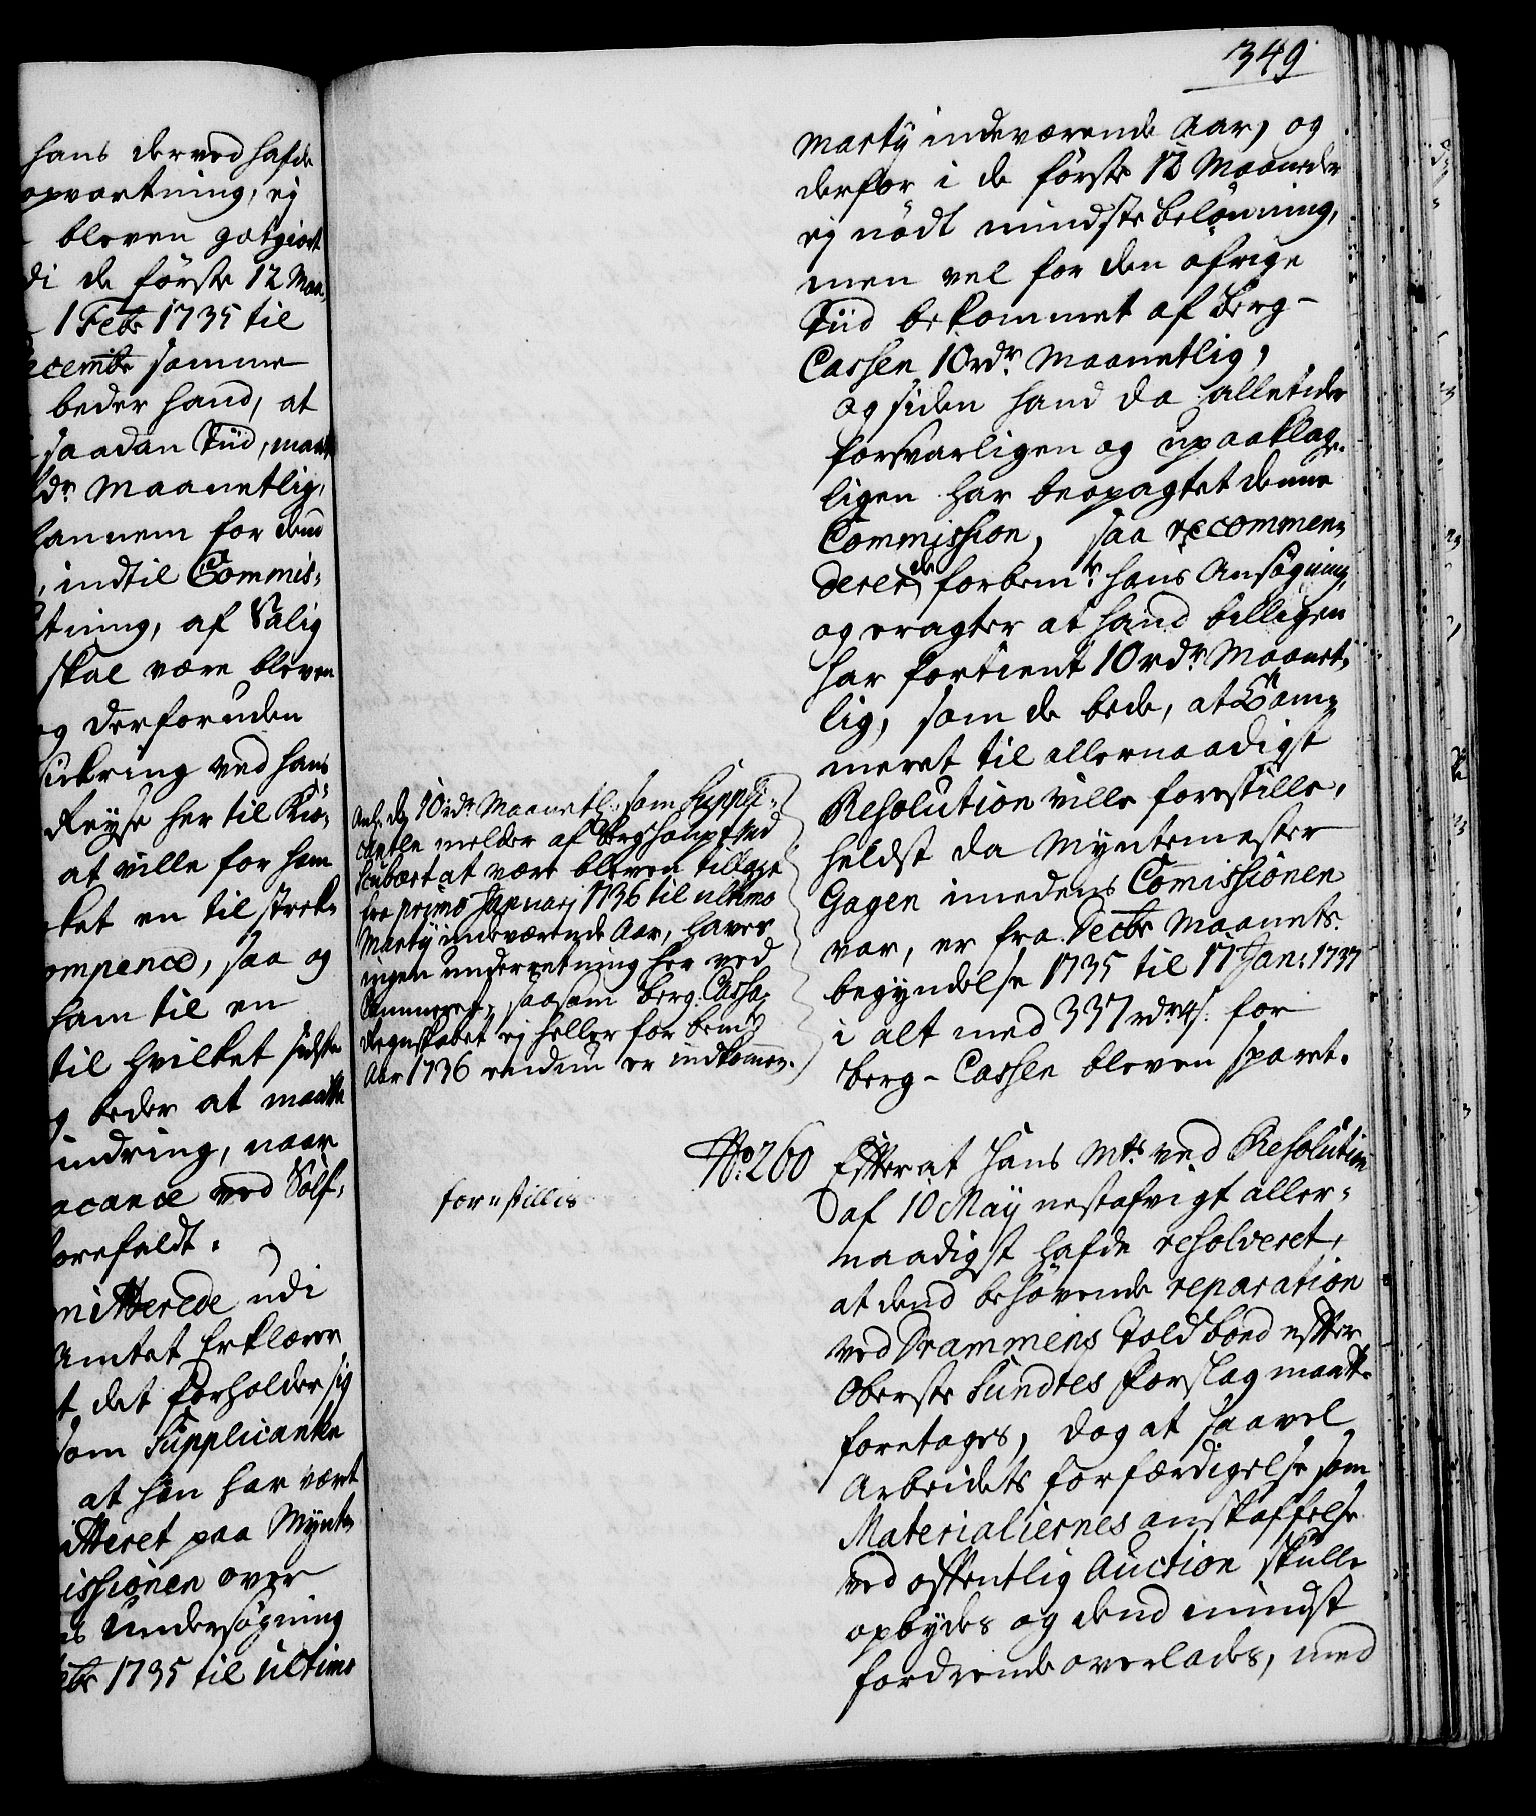 349.
hans derved hafde
opvartning, ej
bleven godgiort
di de første 12 Maa¬
1 Febr 1735 til
Decembr samme
beder hand, at
saadan Tiid, maatte
rdr. Maanetlig,
lannem for dend
, indtil Commis¬
tning, af Salig
skal være bleven
og derforuden
sickring ved hans
Reyse her til Kiø¬
at ville for ham
ket en tilstrek¬
ompence, saa og
ham til en
til hvilket sidste
og beder at maatte
indring, naar
vacance ved Sølf¬
forefaldt.
mitterede udi
Amtet Erklærer
t det forholder sig
som Supplicanten
at han har vært
itteret paa Mynt¬
issionen over
s Undersøgning
Febr 1735 til ultimo
Martij indeværende Aar, og
derfor i de første 12 Maaneder
ej nødt mindste belønning,
men vel for den øfrige
Tiid bekommet af Berg-
Cassen 10 rdr. Maanetlig,
og siden hand da alletider
forsvarligen og upaaklage¬
ligen har beopagtet denne
Commission, saa recommen¬
derer de forbemte. hans Ansøgning,
og eragter at hand billigen
har fortient 10 rdr. Maanet¬
lig, som de bede, at Cam¬
meret til allernaadigst
Resolution ville forestille,
heldst da Myntemester
Gagen imedens Comissionen
var, er fra Decbr Maanets
begyndelse 1735 til 17 Jan: 1737
i alt med 337 rdr. 4 s. for
Berg-Cassen bleven sparet.
Anl. de 10 rdr. Maanetl., som Suppli¬
canten melder af Berghauptmd
Schubært at være bleven tillagt
fra primo Januarj 1736 til ultimo
Martij indeværende Aar, haves
ingen underretning her ved
Kammeret, saasom Berg-Cassa¬
Regnskabet ej heller for bemte
Aar 1736 endnu er indkommen.
No. 260
forestillis
Efterat Hans Mts. ved Resolution
af 10 Maij nestafvigt aller¬
naadigst hafde resolveret,
at dend behøvende reparation
ved Drammens Toldboed efter
Oberste Sundtes Forslag maatte
foretages, dog at saavel
Arbeidets forfærdigelse som
Materialiernes anskaffelse
ved offentlig Auction skulle
opbydes og dend mindst
fordrende overlades, med